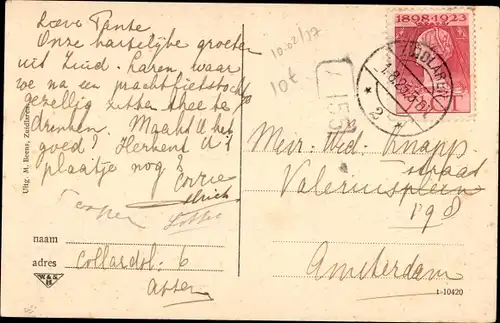 Lieve Tante
Onze hartelijke groeten
uit Zuid-Laren waar
we na een prachtfietstocht
gezellig zitten thee te
drinken. Maakt U het
goed? Herkent U 't
plaatje nog?
Corrie
Uitg. M. Beens, Zuidlaren
naam
adres Collardsl. 6
Assen
1898-1923
ZUIDLAREN
2
10-02/37
10t
155
Mevr. Wed. Knapp
Valeriusplein
straat
198
Amsterdam
t-10420